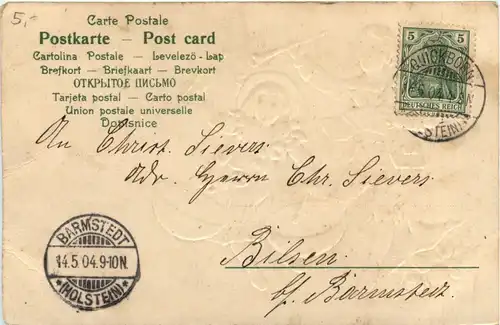 5,-
Carte Postale
Postkarte — Post card
Cartolina Postale — Levelező-Lap
Brefkort — Briefkaart — Brevkort
ОТКРЫТОЕ ПИСЬМО
Tarjeta postal — Carto postal
Union postale universelle
Dopisnice
5 5
DEUTSCHES REICH
QUICKBORN
An Christ. Sievers
Adr. Herrn Chr. Sievers
Bilsen
b/ Barmstedt.
BARMSTEDT
14.5.04.9-10N.
*(HOLSTEIN)*